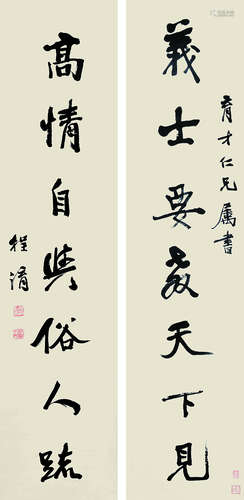 育才仁兄屬書
義士要教天下見
高情自與俗人疏
程淯